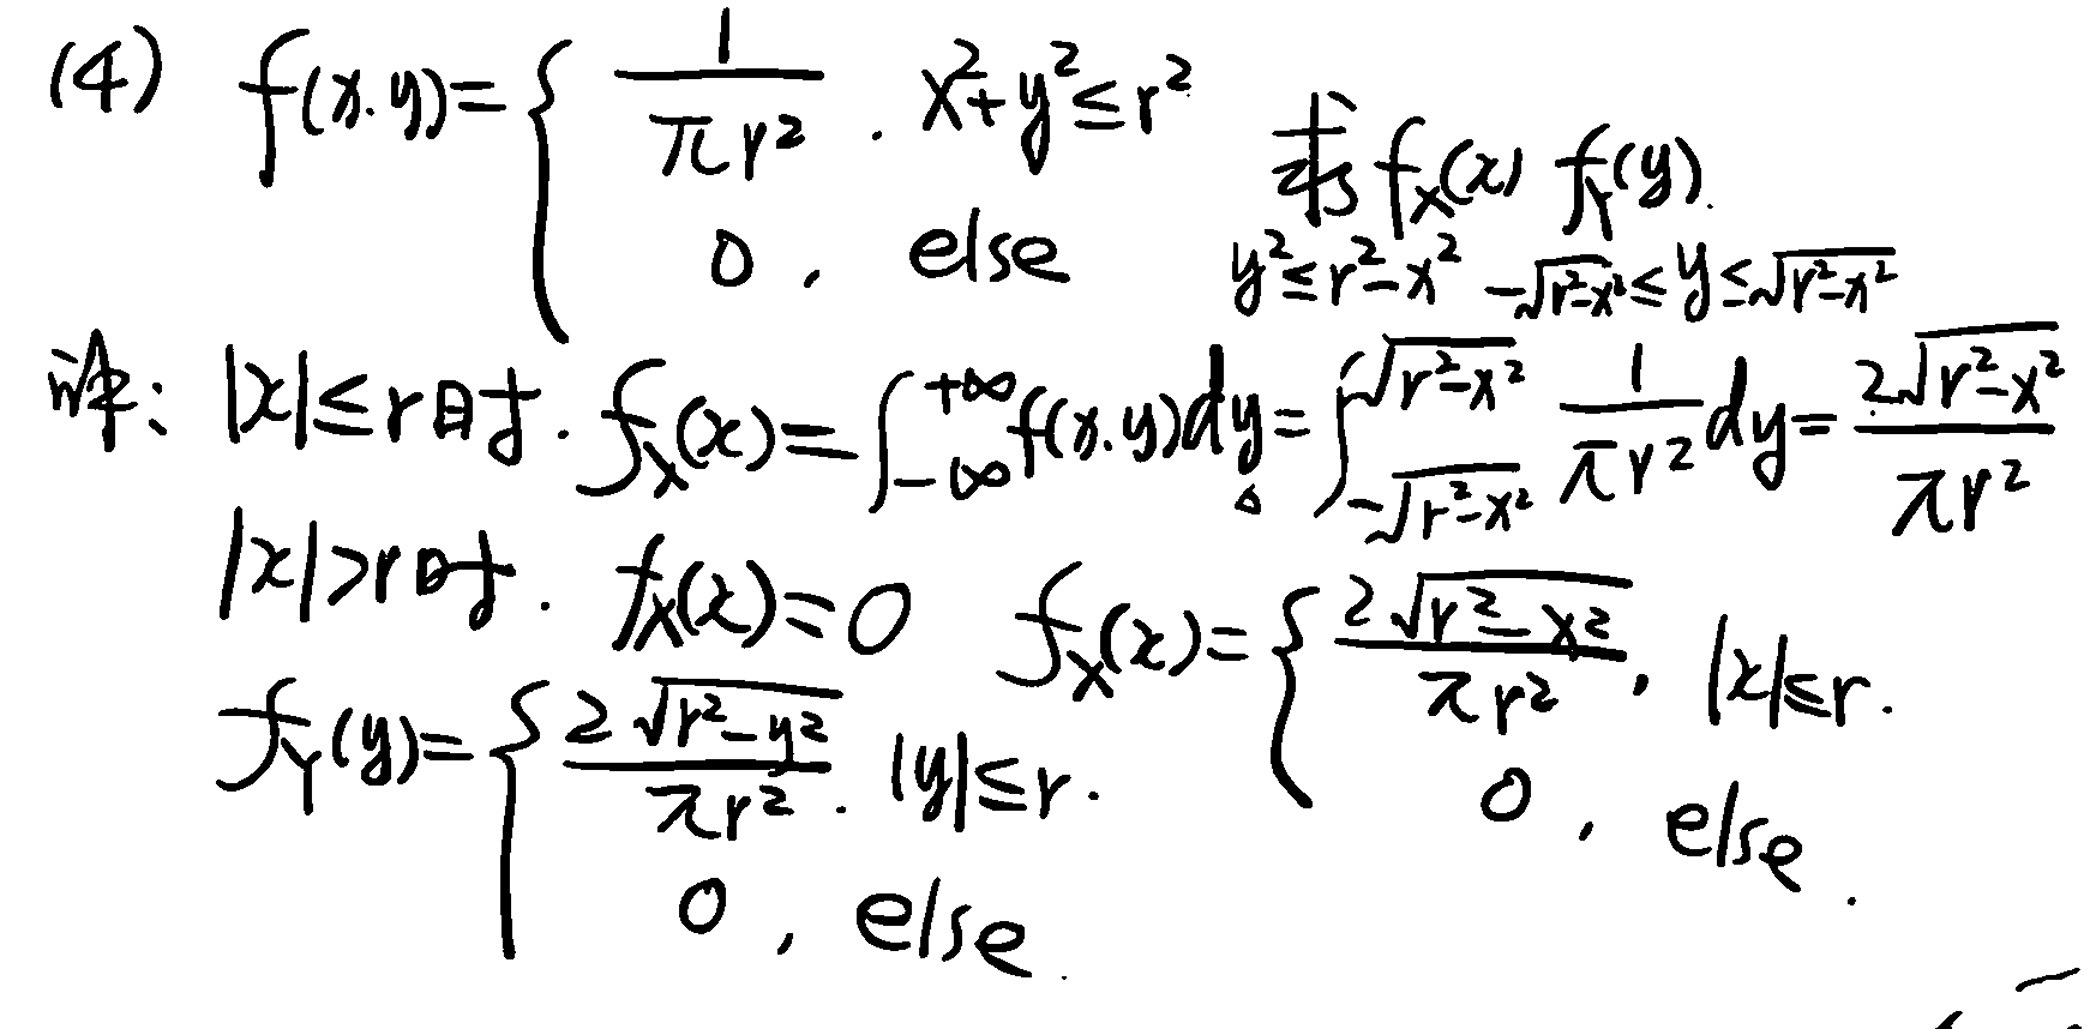 (4) f(x.y)={ 1/πr² . x²+y²≤r²
0 , else
求 f_X(x) f_Y(y).
y²≤r²-x² -√(r²-x²)≤y≤√(r²-x²)
解: |x|≤r时. f_X(x)=∫_{-∞}^{+∞} f(x.y)dy=∫_{-√(r²-x²)}^{√(r²-x²)} 1/πr² dy= 2√(r²-x²)/πr²
|x|>r时. f_X(x)=0 f_X(x)={ 2√(r²-x²)/πr² , |x|≤r.
0 , else.
f_Y(y)={ 2√(r²-y²)/πr² . |y|≤r.
0 , else.